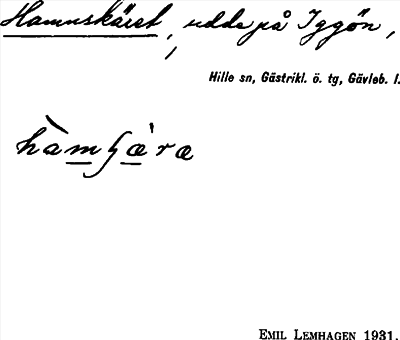 Hamnskäret, udde på Iggön,
Hille sn, Gästrikl. ö. tg, Gävleb. l.
hàmʃæ̀ra
EMIL LEMHAGEN 1931.